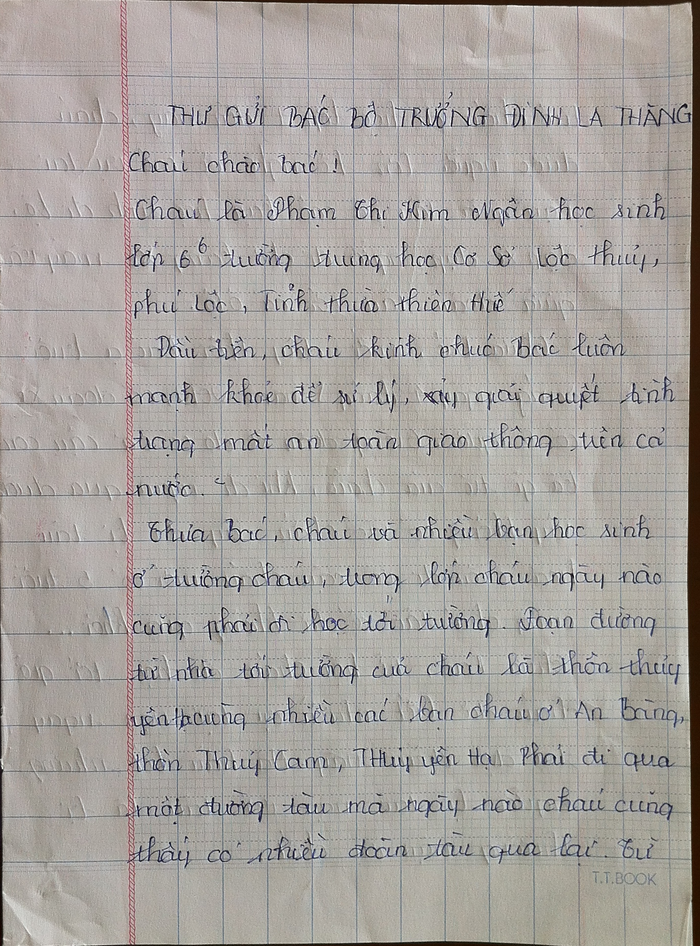 THƯ GỬI BÁC BỘ TRƯỞNG ĐINH LA THĂNG
Cháu chào bác !
Cháu là Phạm Thị Kim Ngân học sinh
lớp 6⁶ trường trung học Cơ Sở Lộc thuỷ,
phú Lộc, Tỉnh thừa thiên Huế
Đầu tiên, cháu kính chúc bác luôn
mạnh khoẻ để xử lý, giải quyết tình
trạng mất an toàn giao thông trên cả
nước.
Thưa bác, cháu và nhiều bạn học sinh
ở trường cháu, trong lớp cháu ngày nào
cũng phải đi học tới trường. Đoạn đường
từ nhà tới trường của cháu là thôn thuỷ
yên cũng nhiều các bạn cháu ở An Bàng,
thôn Thuỷ Cam, THuỷ yên Hạ Phải đi qua
một đường tàu mà ngày nào cháu cũng
thấy có nhiều đoàn tàu qua lại. Từ
T.T.BOOK